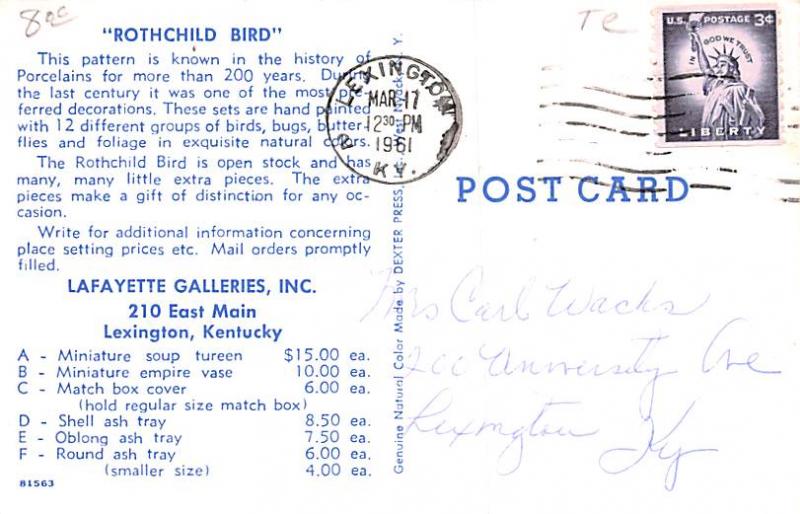 80c
TC
"ROTHCHILD BIRD"
This pattern is known in the history of
Porcelains for more than 200 years. During
the last century it was one of the most pre-
ferred decorations. These sets are hand painted
with 12 different groups of birds, bugs, butter-
flies and foliage in exquisite natural colors.
The Rothchild Bird is open stock and has
many, many little extra pieces. The extra
pieces make a gift of distinction for any oc-
casion.
Write for additional information concerning
place setting prices etc. Mail orders promptly
filled.
LAFAYETTE GALLERIES, INC.
210 East Main
Lexington, Kentucky
A - Miniature soup tureen $15.00 ea.
B - Miniature empire vase 10.00 ea.
C - Match box cover 6.00 ea.
(hold regular size match box)
D - Shell ash tray 8.50 ea.
E - Oblong ash tray 7.50 ea.
F - Round ash tray 6.00 ea.
(smaller size) 4.00 ea.
81563
Genuine Natural Color Made by DEXTER PRESS, West Nyack, N. Y.
LEXINGTON
MAR 17
12 30 PM
1961
KY.
U.S. POSTAGE 3¢
IN GOD WE TRUST
LIBERTY
POST CARD
Mrs Carl Wachs
200 University Ave
Lexington Ky